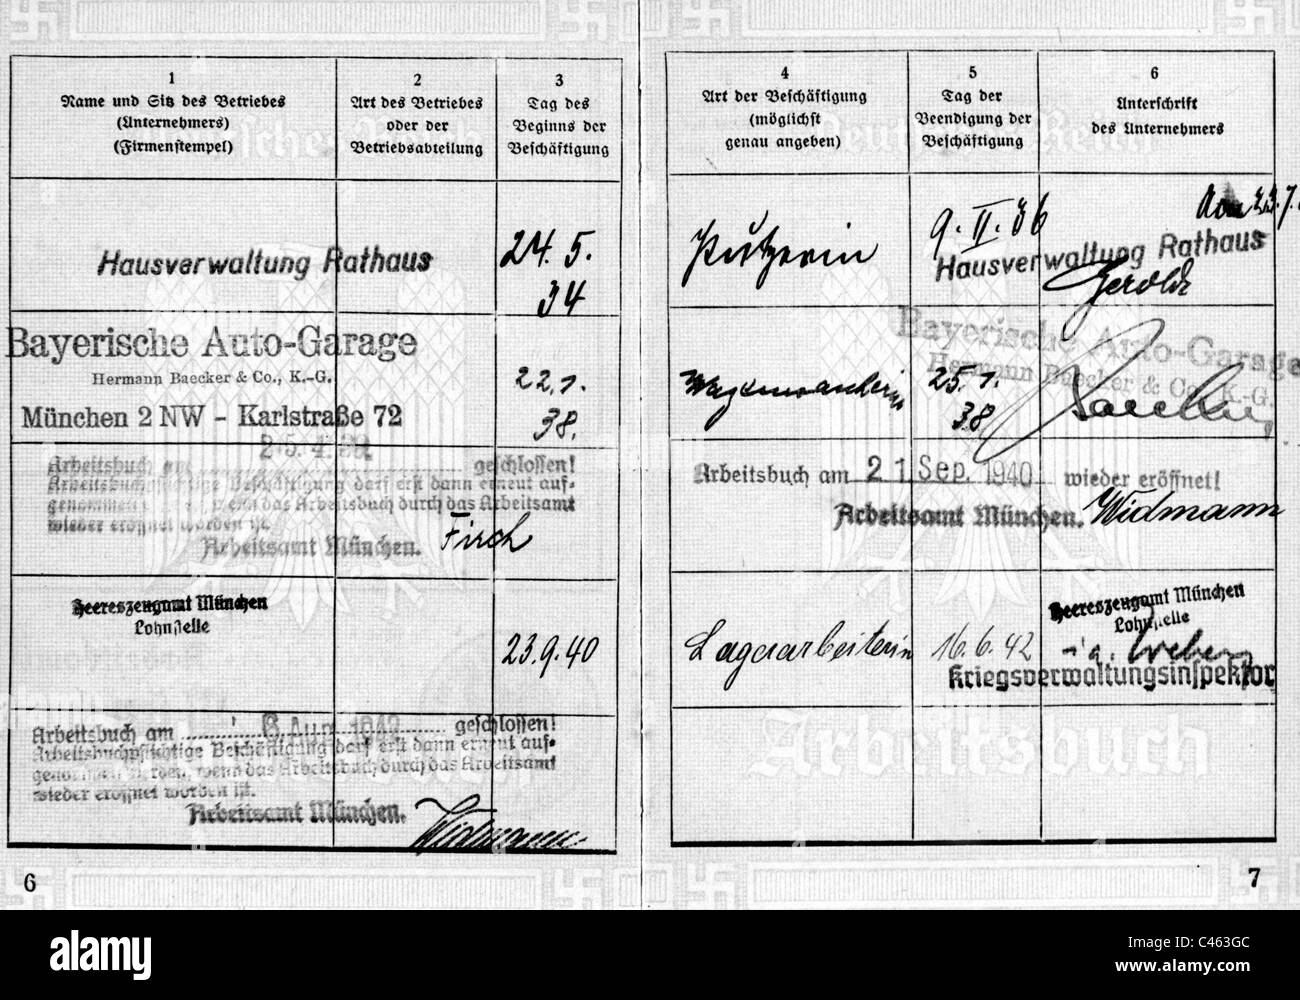 1
Name und Sitz des Betriebes
(Unternehmers)
(Firmenstempel)
2
Art des Betriebes
oder der
Betriebsabteilung
3
Tag des
Beginns der
Beschäftigung
Hausverwaltung Rathaus
24. 5.
34
Bayerische Auto-Garage
Hermann Baecker & Co., K.-G.
München 2 NW - Karlstraße 72
22. 1.
38.
Arbeitsbuch am geschlossen!
Arbeitsbuchpflichtige Beschäftigung darf erst dann erneut auf-
genommen wenn das Arbeitsbuch durch das Arbeitsamt
wieder eröffnet worden ist.
Arbeitsamt München.
Heereszeugamt München
Lohnstelle
23.9.40
Arbeitsbuch am 6. Aug. 1942 geschlossen!
Arbeitsbuchpflichtige Beschäftigung darf erst dann erneut auf-
genommen werden, wenn das Arbeitsbuch durch das Arbeitsamt
wieder eröffnet worden ist.
Arbeitsamt München.
Widmann
6
4
Art der Beschäftigung
(möglichst
genau angeben)
5
Tag der
Beendigung der
Beschäftigung
6
Unterschrift
des Unternehmers
Putzerin
9. II. 36
Hausverwaltung Rathaus
Bayerische Auto-Garage
Hermann Baecker & Co., K.-G.
25. 1.
38
Arbeitsbuch am 21 Sep. 1940 wieder eröffnet!
Arbeitsamt München. Widmann
Lagerarbeiterin
16. 6. 42
Heereszeugamt München
Lohnstelle
i.a. Weber
Kriegsverwaltungsinspektor
Deutsches Reich
Arbeitsbuch
7
alamy
Image ID: C463GC
www.alamy.com